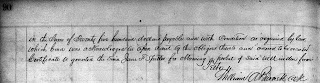 90
in the Sum of Seventy five hundred dollars payable and with Condition as required by law
which bond was acknowledged in Open Court by the obligors thereto and ordered to record
Certificate is granted the said John F. for obtaining probate of said will in due form
Teste
William Clerk